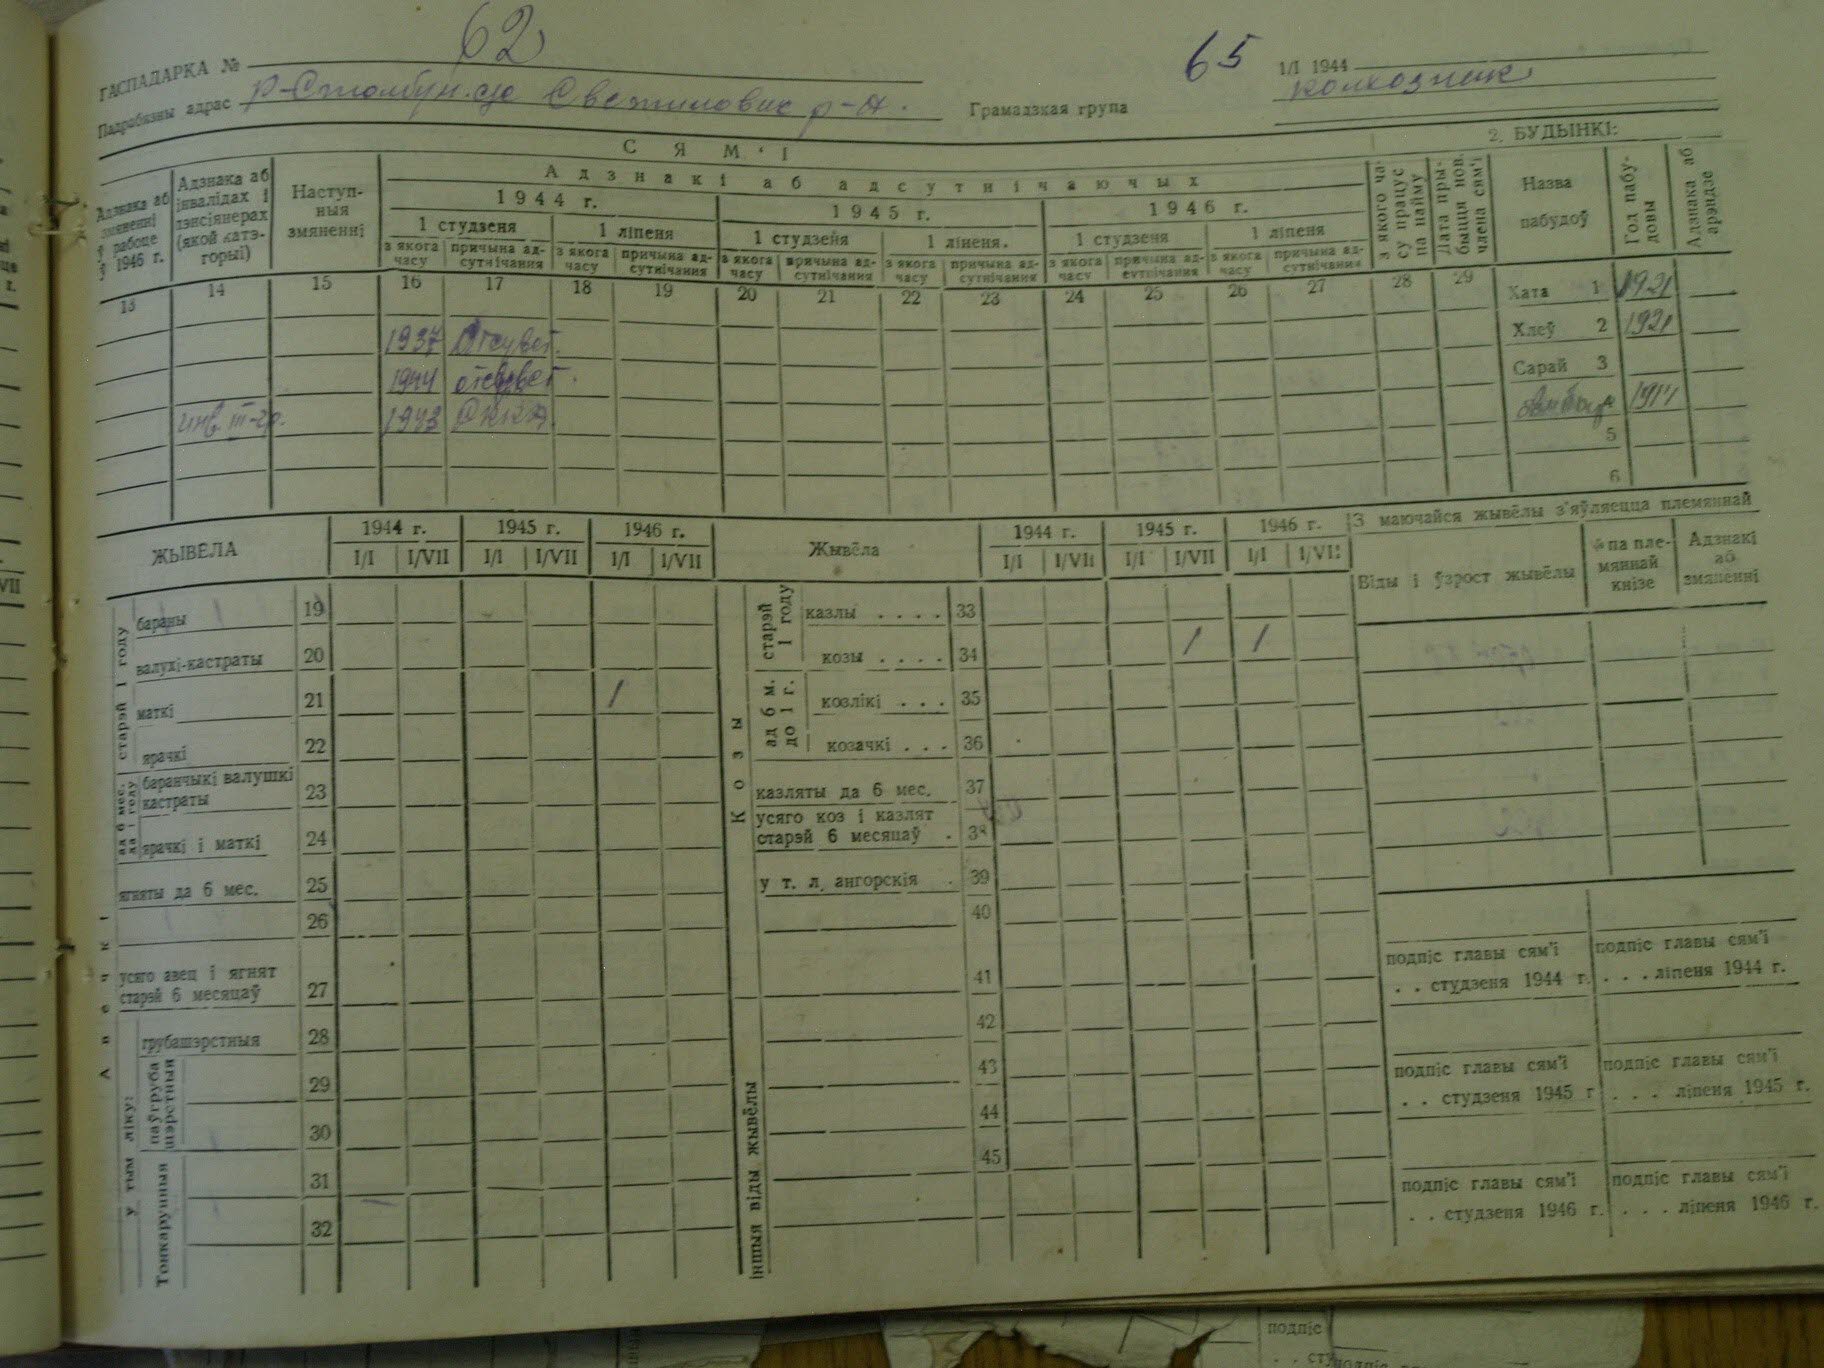 62
65
ГАСПАДАРКА №
1/I 1944
Падрабязны адрас
р-а.
Грамадзкая група
колхозник
СЯМ'І
2. БУДЫНКІ:
Адзнака аб змяненні ў рабоце ў 1946 г.
Адзнака аб інвалідах і пэнсіянерах (якой катэгорыі)
Наступныя змяненні
Адзнакі аб адсутнічаючых
1944 г.
1945 г.
1946 г.
1 студзеня
1 ліпеня
1 студзейя
1 ліпеня.
1 студзеня
1 ліпеня
з якога часу
причына адсутнічания
з якога часу
причына адсутнічания
з якога часу
причына адсутнічания
з якога часу
причына адсутнічания
з якога часу
причына адсутнічания
з якога часу
причына адсутнічания
з якога часу працуе па найму
Дата прыбыцця нов. члена сям'і
Назва пабудоў
Год пабудовы
Адзнака аб арэндзе
13 14 15 16 17 18 19 20 21 22 23 24 25 26 27 28 29
Хата 1 1921
1937
Хлеў 2 1921
1944
Сарай 3
инв. III-гр. 1943 РККА
1914
5
6
ЖЫВЁЛА
1944 г.
1945 г.
1946 г.
I/I I/VII I/I I/VII I/I I/VII
Жывёла
1944 г.
1945 г.
1946 г.
I/I I/VII I/I I/VII I/I I/VII
З маючайся жывёлы з'яўляецца племяннай
Віды і ўзрост жывёлы
№ па племяннай кнізе
Адзнакі аб змяненні
Авечкі
старэй 1 году
бараны 19
валухі-кастраты 20
маткі 21 1
ярачкі 22
ад 6 мес. да 1 году
баранчыкі валушкі кастраты 23
ярачкі і маткі 24
ягняты да 6 мес. 25
26
усяго авец і ягнят старэй 6 месяцаў 27
у тым ліку:
грубашэрстныя 28
паўгруба шэрстныя
29
30
Тонкарунныя
31
32
Козы
старэй 1 году
казлы . . . . 33
козы . . . . 34 1 1
ад 6 м. до 1 г.
козлікі . . . 35
козачкі . . . 36
казляты да 6 мес. 37
усяго коз і казлят старэй 6 месяцаў . 38
у т. л. ангорскія . 39
40
41
Іншыя віды жывёлы
42
43
44
45
подпіс главы сям'і
. . студзеня 1944 г.
подпіс главы сям'і
. . . ліпеня 1944 г.
подпіс главы сям'і
. . студзеня 1945 г
подпіс главы сям'і
. . . ліпеня 1945 г.
подпіс главы сям'і
. . студзеня 1946 г.
подпіс главы сям'і
. . . ліпеня 1946 г.
подпіс